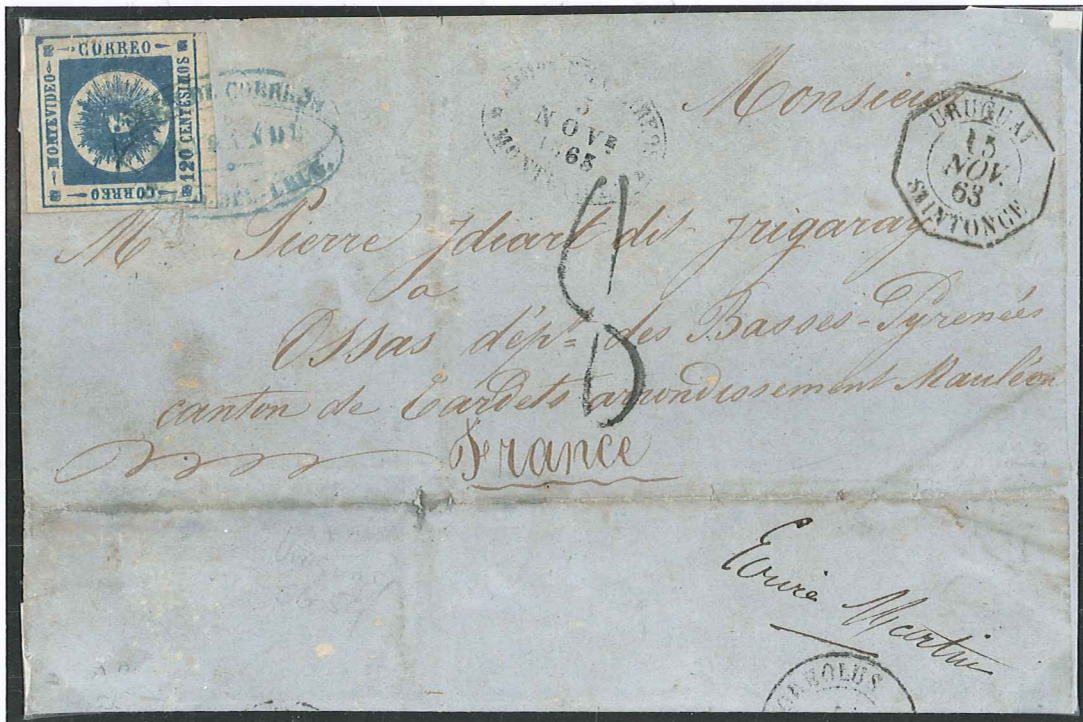 CORREO
MONTEVIDEO
120 CENTESIMOS
CORREO
CORREOS
5
NOVE
1863
MONTEVIDEO
URUGUAI
15
NOV.
63
SAINTONGE
Monsieur
M Pierre Idiart dit Irigaray
a
Ossas dépt. des Basses-Pyrenées
canton de Tardets arrondissement Mauléon
France
8
Martin